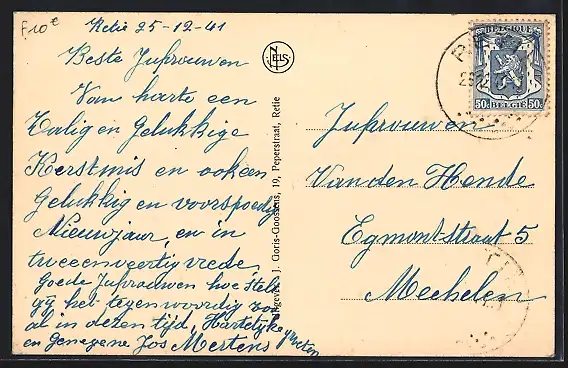 F10€
Retie 25-12-41
Beste Jufrouwen
Van harte een
Zalig en Gelukkige
Kerstmis en ook een
gelukkig en voorspoedig
Nieuwjaar, en in
tweeenveertig vrede,
Goede Jufrouwen hoe stelt
gij het tegenwoordig zoo
al in dezen tijd, Hartelijke groeten
en genegene Jos Mertens
NELS
Uitgever J. Goris-Goossens, 19, Peperstraat, Retie
BELGIQUE
50c BELGIE 50c
Jufrouwen
Vanden Hende
Egmont-straat 5
Mechelen